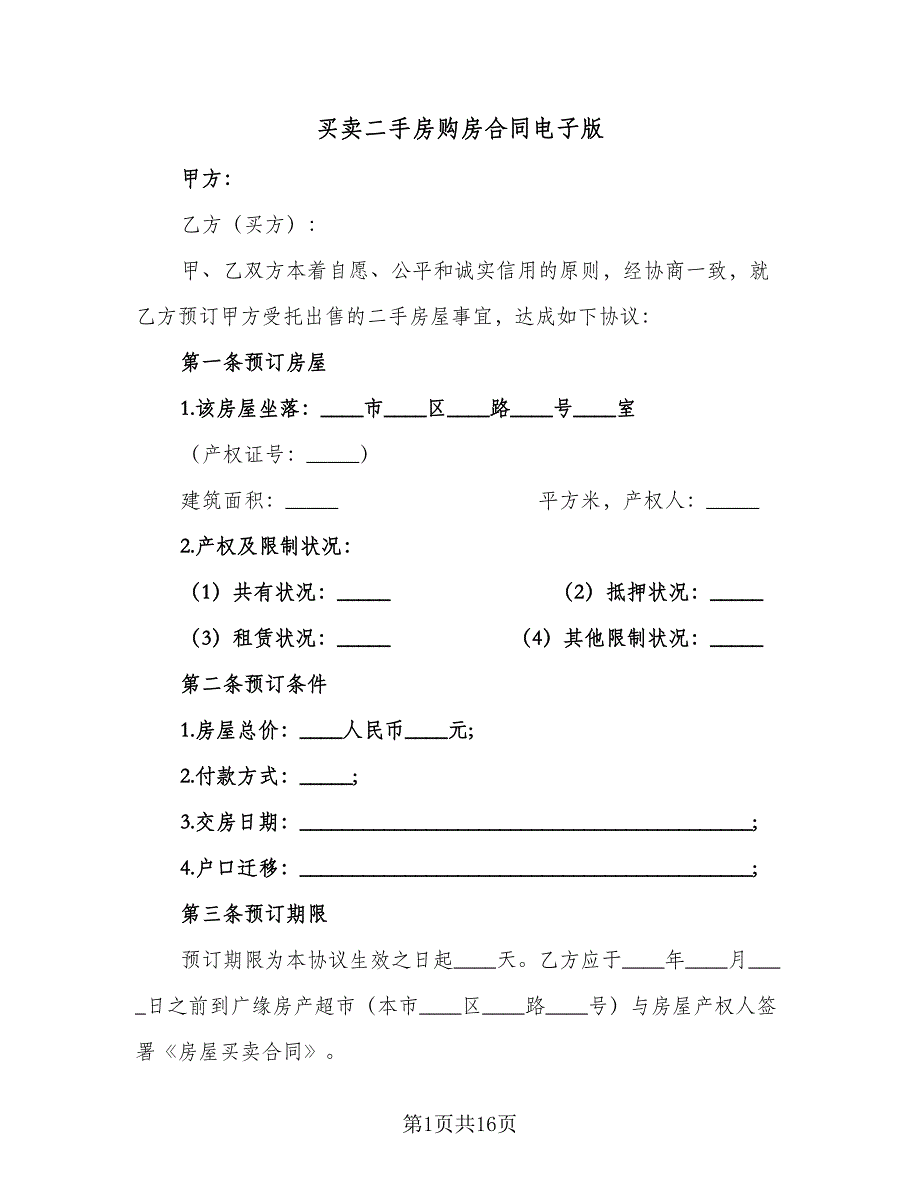 买卖二手房购房合同电子版
甲方：
乙方（买方）：
甲、乙双方本着自愿、公平和诚实信用的原则，经协商一致，就
乙方预订甲方受托出售的二手房屋事宜，达成如下协议：
第一条预订房屋
1.该房屋坐落：____市____区____路____号____室
（产权证号：_____）
建筑面积：_____ 平方米，产权人：_____
2.产权及限制状况：
（1）共有状况：_____ （2）抵押状况：_____
（3）租赁状况：_____ （4）其他限制状况：_____
第二条预订条件
1.房屋总价：____人民币____元;
2.付款方式：_____;
3.交房日期：___________________________________________;
4.户口迁移：___________________________________________;
第三条预订期限
预订期限为本协议生效之日起____天。乙方应于____年____月___
_日之前到广缘房产超市（本市____区____路____号）与房屋产权人签
署《房屋买卖合同》。
第1页共16页